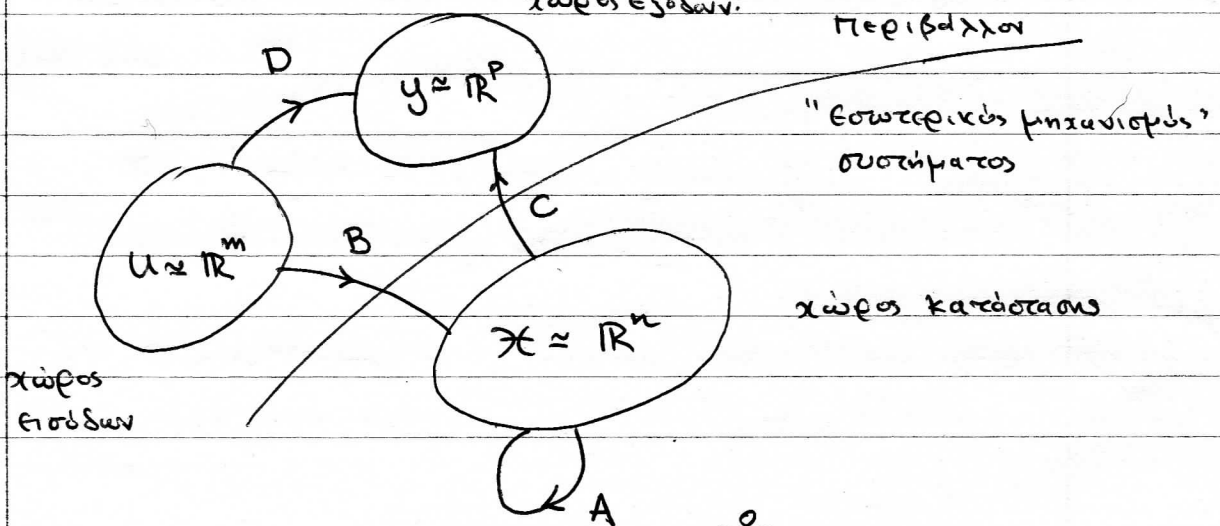 χώρος εξόδων.
Περιβάλλον
D
y ≃ ℝᵖ
"Εσωτερικός μηχανισμός"
συστήματος
C
B
U ≃ ℝᵐ
χώρος κατάστασης
𝓗 ≃ ℝⁿ
χώρος
εισόδων
A